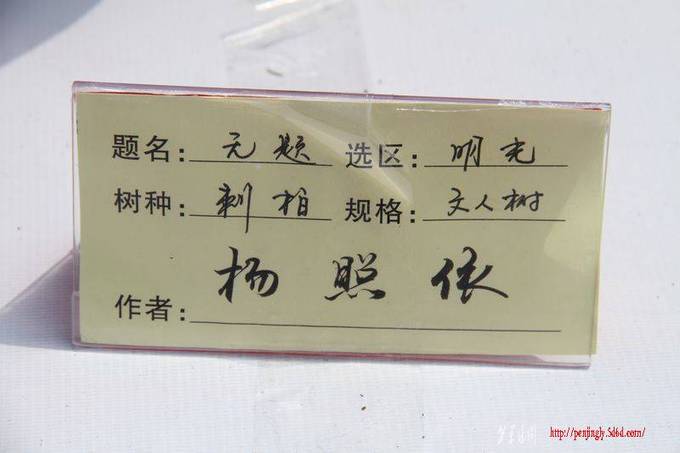 题名：无题 选区：明光
树种：刺柏 规格：文人树
杨照依
作者：
http://penjingly.5d6d.com/